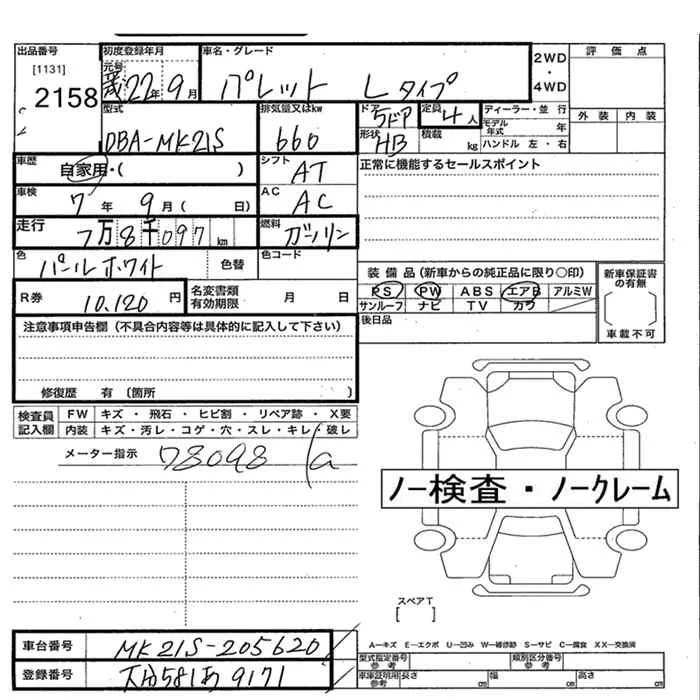 出品番号
[1131]
2158
初度登録年月
元号 22年 9月
車名・グレード
パレット Lタイプ
2WD
・
4WD
評価点
外装 内装
型式
DBA-MK21S
排気量又はkw
660
ドア
5ドア
形状
HB
定員
4人
積載
kg
ディーラー・並行
モデル年式 年
ハンドル 左・右
車歴
自家用・( )
シフト
AT
正常に機能するセールスポイント
車検
7年 9月( 日)
AC
AC
走行
7万8千097km
燃料
ガソリン
色
パールホワイト
色替
色コード
装備品(新車からの純正品に限り〇印)
PS PW ABS エアB アルミW
サンルーフ ナビ TV カワ
新車保証書の有無
車載不可
R券
10.120円
名変書類有効期限 月 日
後日品
注意事項申告欄(不具合内容等は具体的に記入して下さい)
修復歴 有(箇所 )
検査員記入欄
FW キズ・飛石・ヒビ割・リペア跡・X要
内装 キズ・汚レ・コゲ・穴・スレ・キレ・破レ
メーター指示 78098
ノー検査・ノークレーム
スペアT
[ ]
A−キズ E−エクボ U−凹み W−補修跡 S−サビ C−腐食 XX−交換済
車台番号 MK21S-205620
登録番号 581あ9171
型式指定番号参考
類別区分番号参考
車庫証明用参考 長さ cm 幅 cm 高さ cm